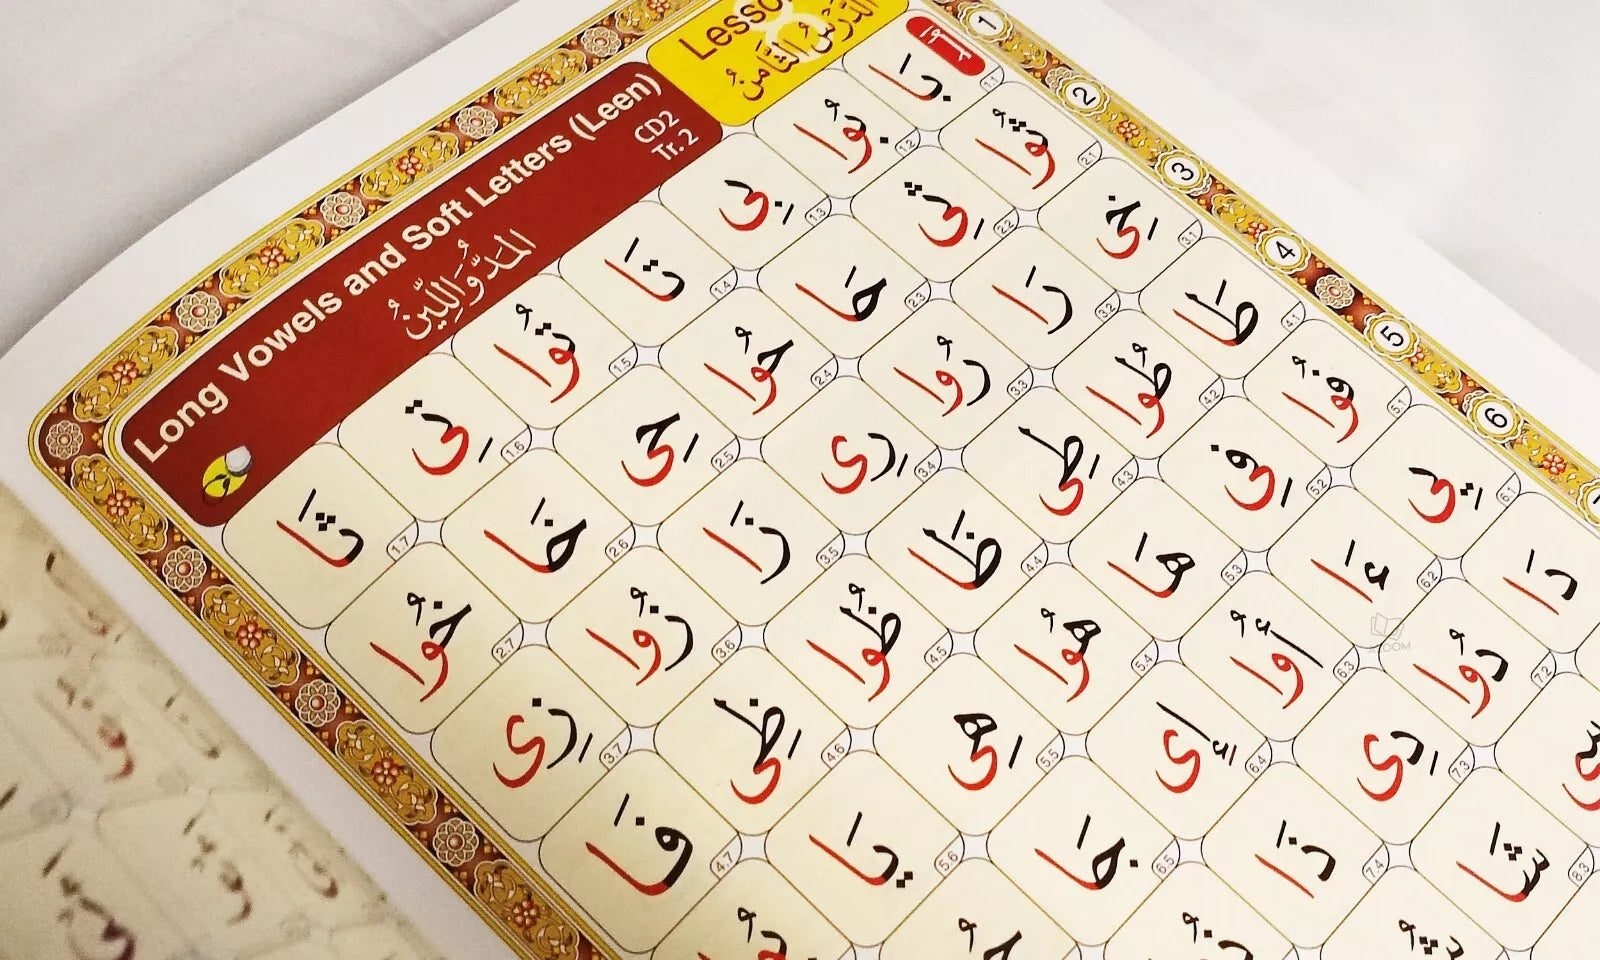 Lesso
الدَّرْسُ الثَّامِنُ
Long Vowels and Soft Letters (Leen)
CD2
Tr. 2
المَدُّ وَاللِّينُ
1
بَا 1.1 بُوا 1.2 بِى 1.3 تَا 1.4 تُوا 1.5 تِى 1.6 ثَا 1.7
2
ثُوا 2.1 ثِى 2.2 حَا 2.3 حُوا 2.4 حِى 2.5 خَا 2.6 خُوا 2.7
3
خِى 3.1 رَا 3.2 رُوا 3.3 رِى 3.4 زَا 3.5 زُوا 3.6 زِى 3.7
4
طَا 4.1 طُوا 4.2 طِى 4.3 ظَا 4.4 ظُوا 4.5 ظِى 4.6 فَا 4.7
5
فُوا 5.1 فِى 5.2 هَا 5.3 هُوا 5.4 هِى 5.5 يَا 5.6
6
يِى 6.1 ءَا 6.2 أُوا 6.3 ءِى 6.4 جَا 6.5
دَا دُوا 7.2 دِى 7.3 ذَا 7.4
شَا 8.3